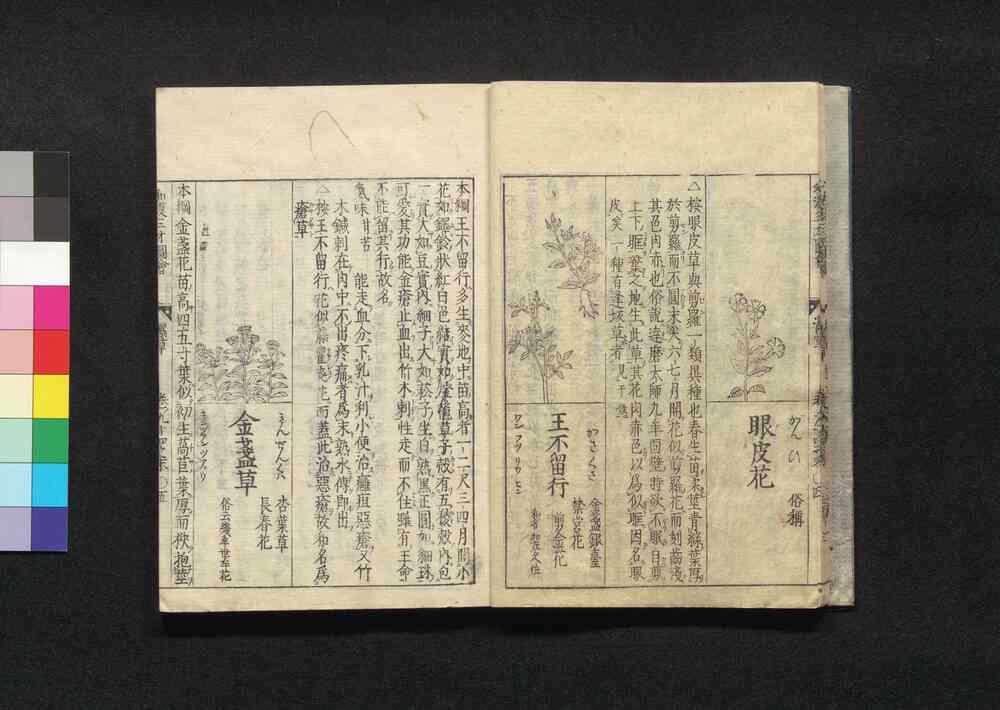 眼皮花
がんひ
俗稱
△按眼皮草與剪羅一類異種也春生苗柔莖青綠葉厚
於剪羅而不圓末尖六七月開花似剪羅花而刻齒淺
其色肉赤也俗說達磨大師九年面壁時欲不眠自剪
上下眶葉之地生此草其花肉赤色以爲似眶因名眼
皮矣一種有達磨草者見于
王不留行
かさくさ
ワンフリウヒン
金盞銀臺
禁宮花
剪金花
本綱王不留行多生麥地中苗高者一二尺三四月開小
花如鐸鈴狀紅白色結實如燈籠草子殼有五稜殼內包
一實大如豆實內細子大如菘子生白熟黑正圓如細珠
可愛其功能金瘡止血出竹木刺性走而不住雖有王命
不能留其行故名
氣味甘苦 能走血分下乳汁利小便治癰疽惡瘡又竹
木鍼刺在肉中不出疼痛者爲末熟水傅即出
△按王不留行花似 而蓋此治惡瘡故和名爲
瘡草
金盞草
きんせんくわ
キンツアンツアウ
杏葉草
長春花
本綱金盞花苗高四五寸葉似初生萵苣葉厚而狹抱莖
和漢三才圖會